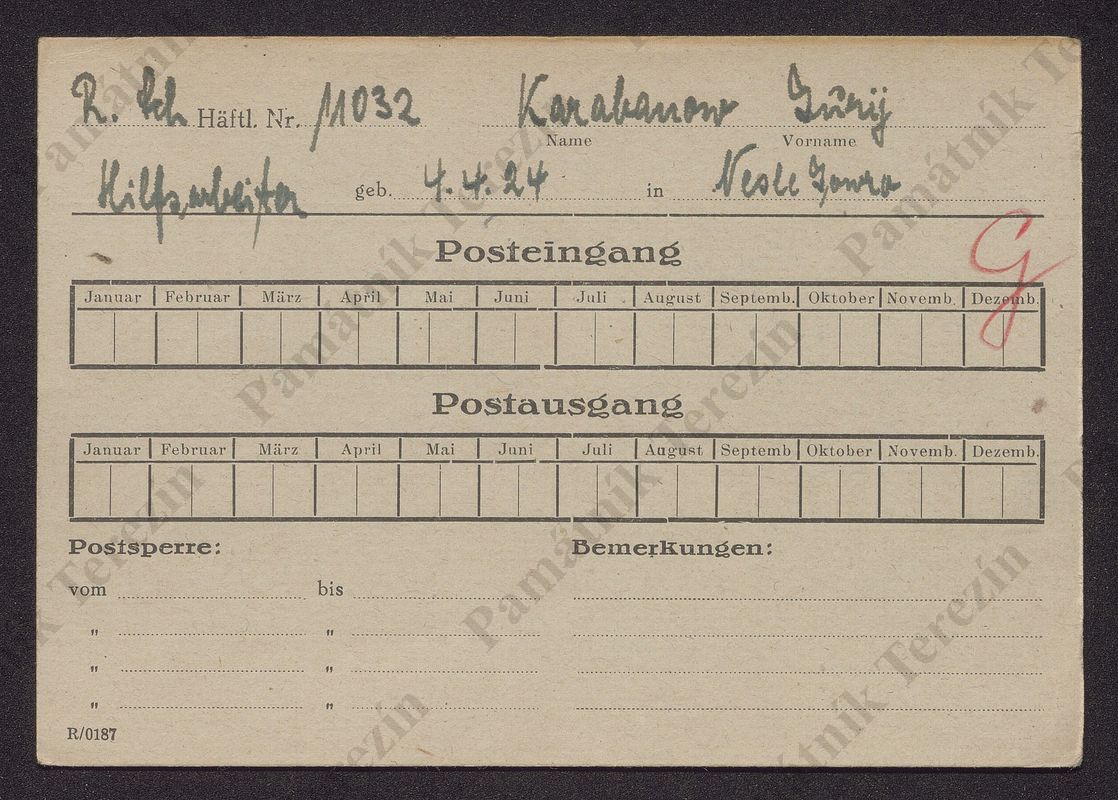 R. Sch Häftl. Nr. 11032 Karabanow Jurij
Name Vorname
Hilfsarbeiter geb. 4.4.24 in
G
Posteingang
Januar Februar März April Mai Juni Juli August Septemb. Oktober Novemb. Dezemb.
Postausgang
Januar Februar März April Mai Juni Juli August Septemb Oktober Novemb. Dezemb.
Postsperre: Bemerkungen:
vom bis
" "
" "
" "
R/0187
Památník Terezín